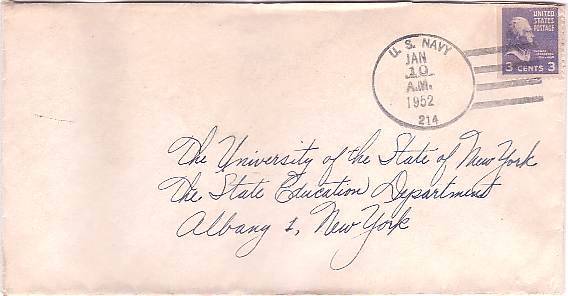 U. S. NAVY
JAN
10
A.M.
1952
214
UNITED
STATES
POSTAGE
3 CENTS 3
The University of the State of New York
The State Education Department
Albany 1, New York